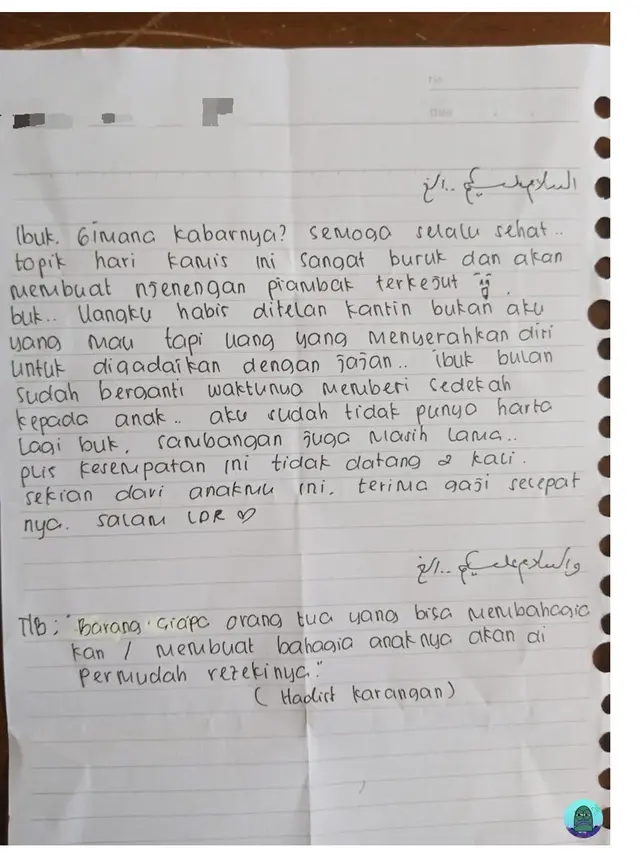 No
Date
السلام عليكم .. الخ
Ibuk. Gimana kabarnya? semoga selalu sehat..
topik hari kamis ini sangat buruk dan akan
membuat njenengan piambak terkejut
buk.. Uangku habis ditelan kantin bukan aku
yang mau tapi uang yang menyerahkan diri
untuk digadaikan dengan jajan.. ibuk bulan
sudah berganti waktunya memberi sedekah
kepada anak.. aku sudah tidak punya harta
lagi buk. sambangan juga masih lama..
plis kesempatan ini tidak datang 2 kali.
sekian dari anakmu ini. terima gaji secepat
nya. salam LDR ♡
والسلام عليكم .. الخ
NB: "Barang siapa orang tua yang bisa membahagia
kan / membuat bahagia anaknya akan di
permudah rezekinya."
( Hadist karangan )